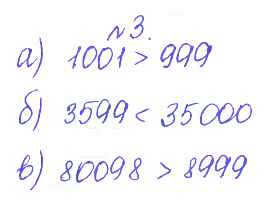 №3.
а) 1001 > 999
б) 3599 < 35000
в) 80098 > 8999